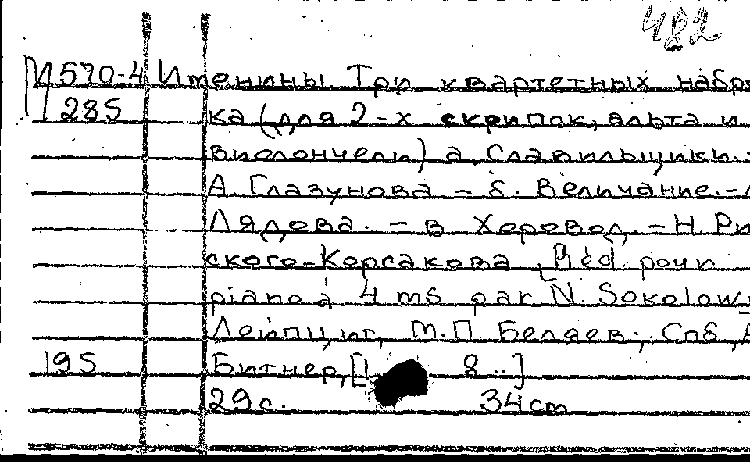 482
М570-4 Именины. Три квартетных набр
285 ка (для 2-х скрипок, альта и
виолончели) а. Славильщики.-
А. Глазунова - б. Величание.-
Лядова. - в Хоровод.- Н. Ри
ского-Корсакова, Réd. pour
piano à 4 ms par N. Sokolow
Лейпциг, М.П. Беляев; Спб,
195 Битнер, [1 8..]
29 с. 34 cm